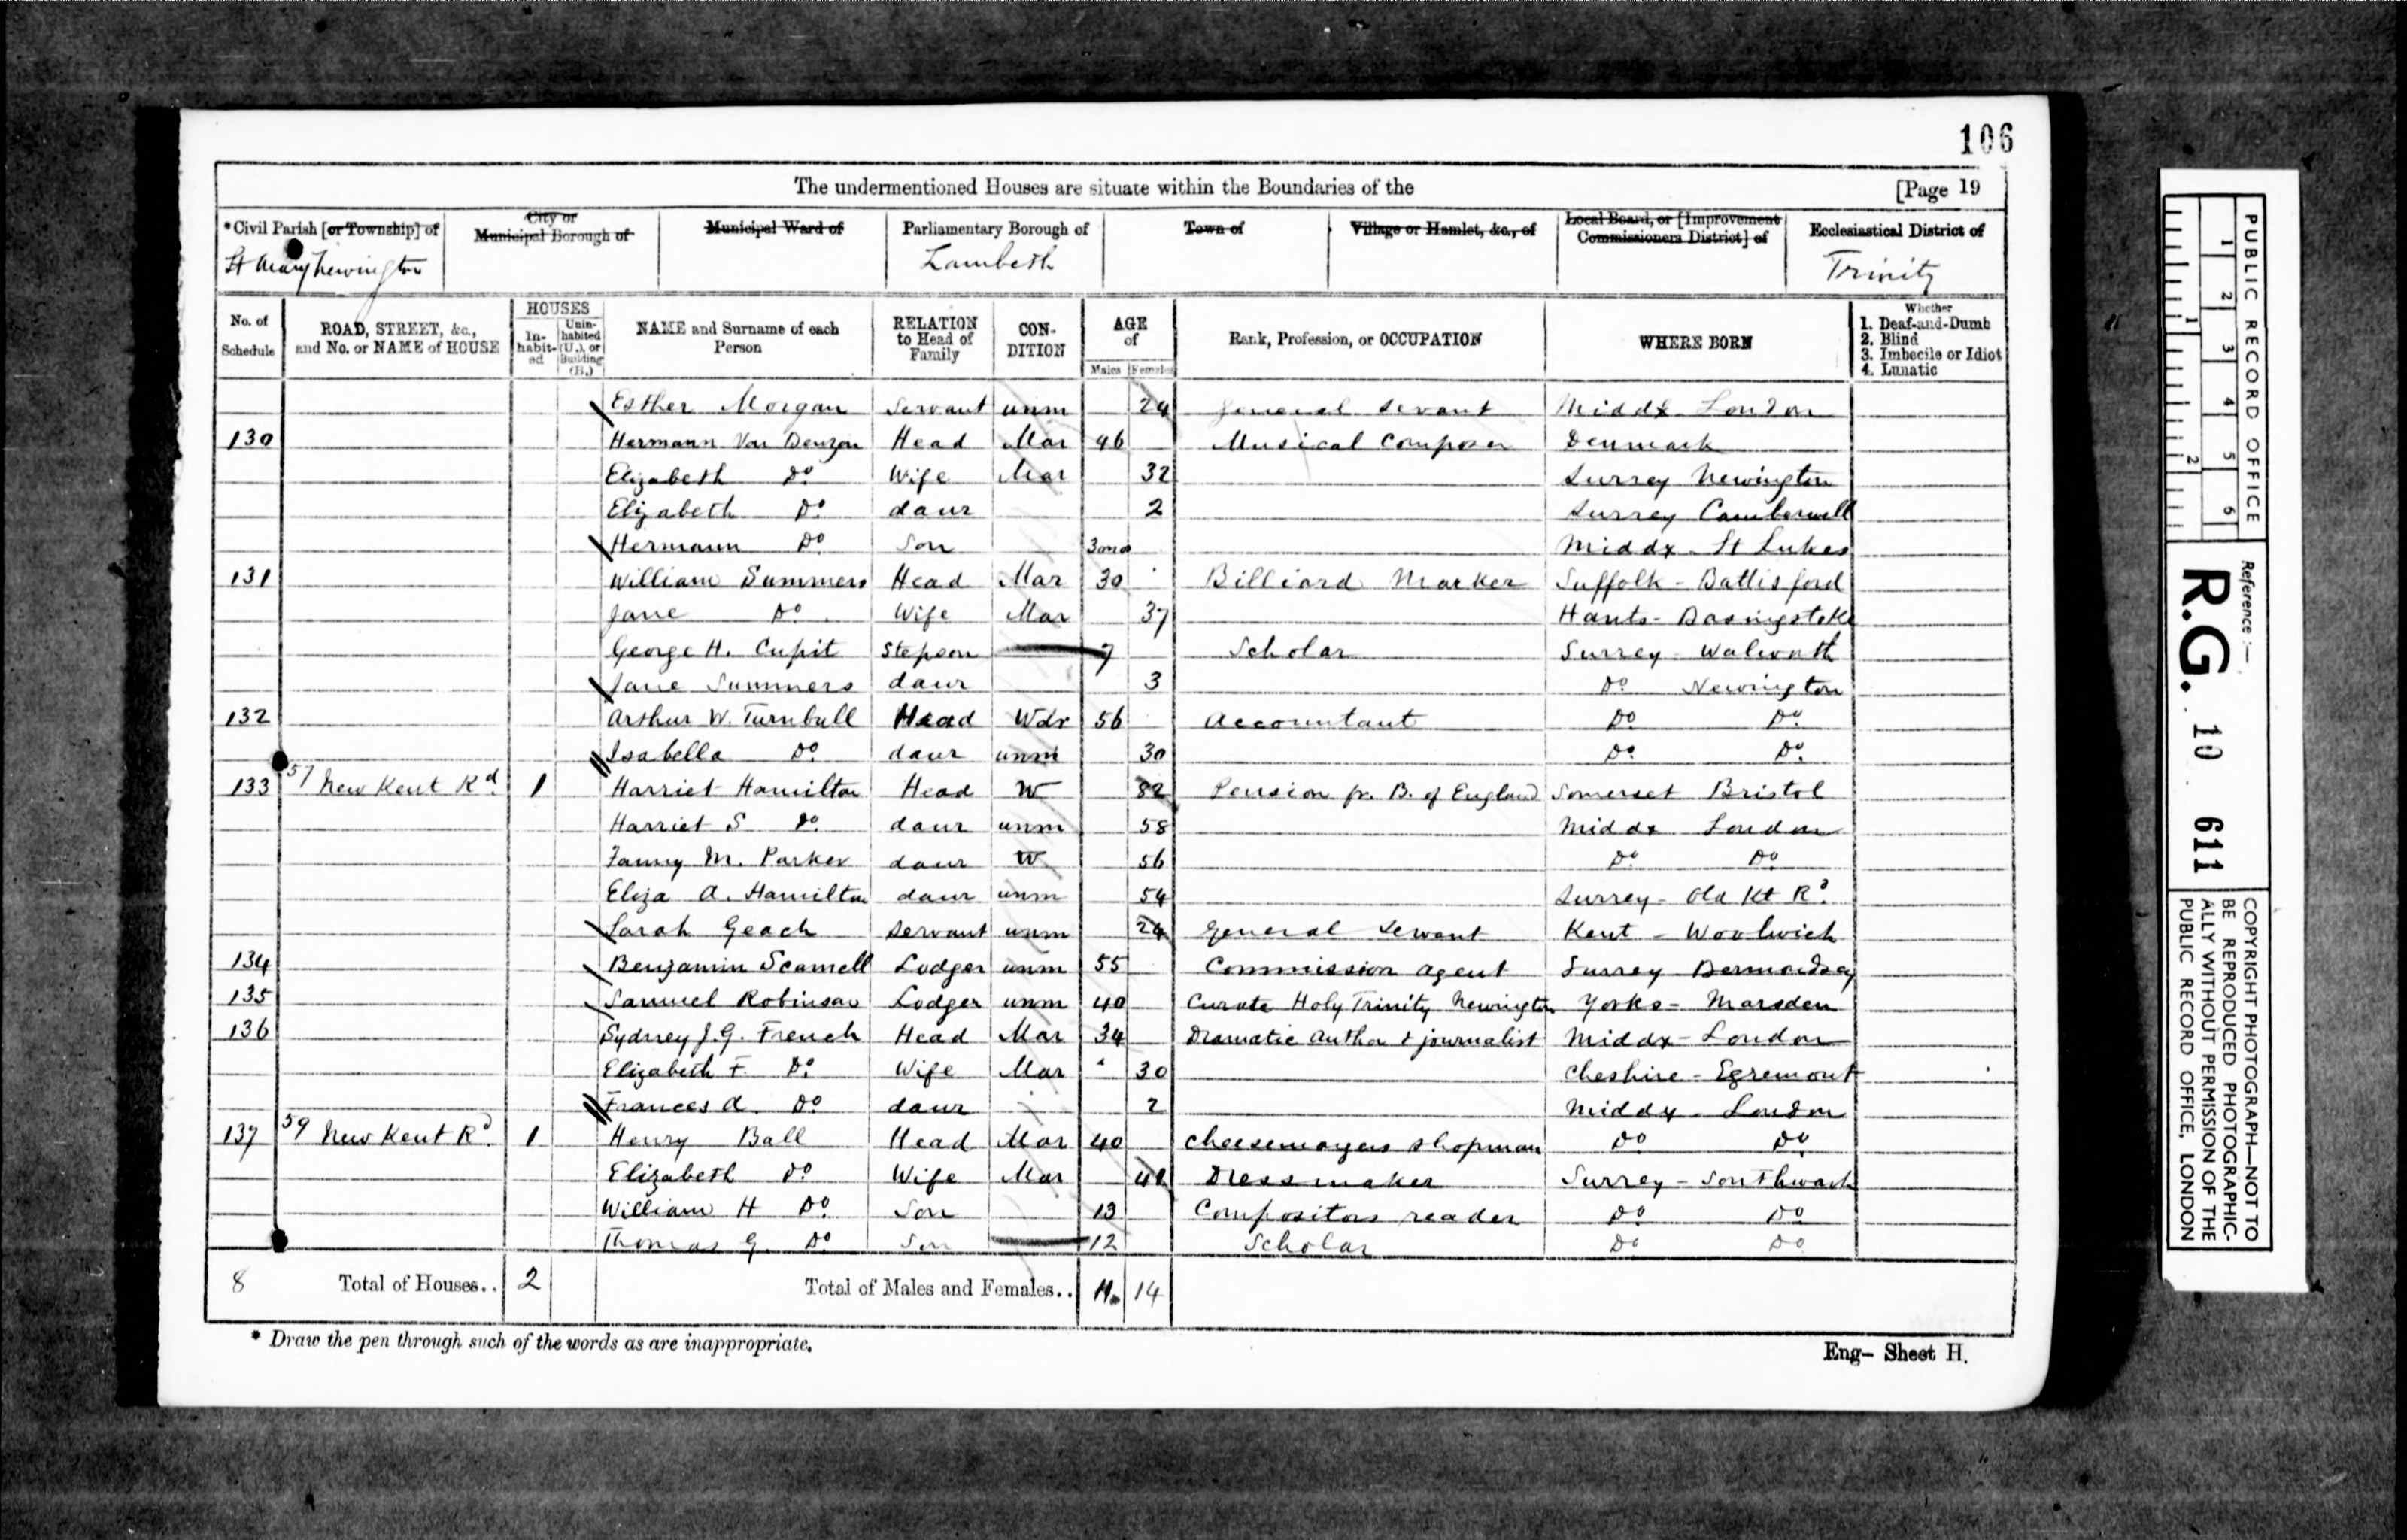 106
The undermentioned Houses are situate within the Boundaries of the [Page 19
*Civil Parish [or Township] of
City or Municipal Borough of
Municipal Ward of
Parliamentary Borough of
Town of
Village or Hamlet, &c., of
Local Board, or [Improvement Commissioners District] of
Ecclesiastical District of
St Mary Newington
Lambeth
Trinity
No. of Schedule
ROAD, STREET, &c., and No. or NAME of HOUSE
HOUSES
In-habit-ed
Unin-habited (U.), or Building (B.)
NAME and Surname of each Person
RELATION to Head of Family
CON-DITION
AGE of
Males
Females
Rank, Profession, or OCCUPATION
WHERE BORN
Whether
1. Deaf-and-Dumb
2. Blind
3. Imbecile or Idiot
4. Lunatic
Esther Morgan Servant unm 24 General Servant Middx London
130 Hermann Head Mar 46 Musical Composer Denmark
Elizabeth Do Wife Mar 32 Surrey Newington
Elizabeth Do daur 2 Surrey Camberwell
Hermann Do Son 3mos Middx St Lukes
131 William Summers Head Mar 30 Billiard Marker Suffolk - Battisford
Jane Do Wife Mar 37 Hants - Basingstoke
George H. Cupit Stepson 7 Scholar Surrey - Walworth
Jane Summers daur 3 Do Newington
132 Arthur W. Turnbull Head Wdr 56 Accountant Do Do
Isabella Do daur unm 30 Do Do
133 57 New Kent Rd 1 Harriet Hamilton Head W 82 Pension fr. B. of England Somerset Bristol
Harriet S Do daur unm 58 Middx London
Fanny M. Parker daur W 56 Do Do
Eliza A. Hamilton daur unm 54 Surrey - Old Kt Rd
Sarah Geach Servant unm 24 General Servant Kent - Woolwich
134 Benjamin Scamell Lodger unm 55 Commission agent Surrey Bermondsey
135 Samuel Robinson Lodger unm 40 Curate Holy Trinity Newington Yorks - Marsden
136 Sydney J.G. French Head Mar 34 Dramatic Author & journalist Middx - London
Elizabeth F. Do Wife Mar 30 Cheshire - Egremont
Frances A. Do daur 2 Middx London
137 59 New Kent Rd 1 Henry Ball Head Mar 40 Cheesemongers shopman Do Do
Elizabeth Do Wife Mar Dressmaker Surrey - Southwark
William H Do Son 13 Compositors reader Do Do
Thomas G. Do Son 12 Scholar Do Do
8 Total of Houses.. 2 Total of Males and Females.. 11 14
* Draw the pen through such of the words as are inappropriate.
Eng- Sheet H.
PUBLIC RECORD OFFICE
1 2 3 4 5 6
1 2
Reference :—
R.G. 10 611
COPYRIGHT PHOTOGRAPH—NOT TO BE REPRODUCED PHOTOGRAPHIC-ALLY WITHOUT PERMISSION OF THE PUBLIC RECORD OFFICE, LONDON